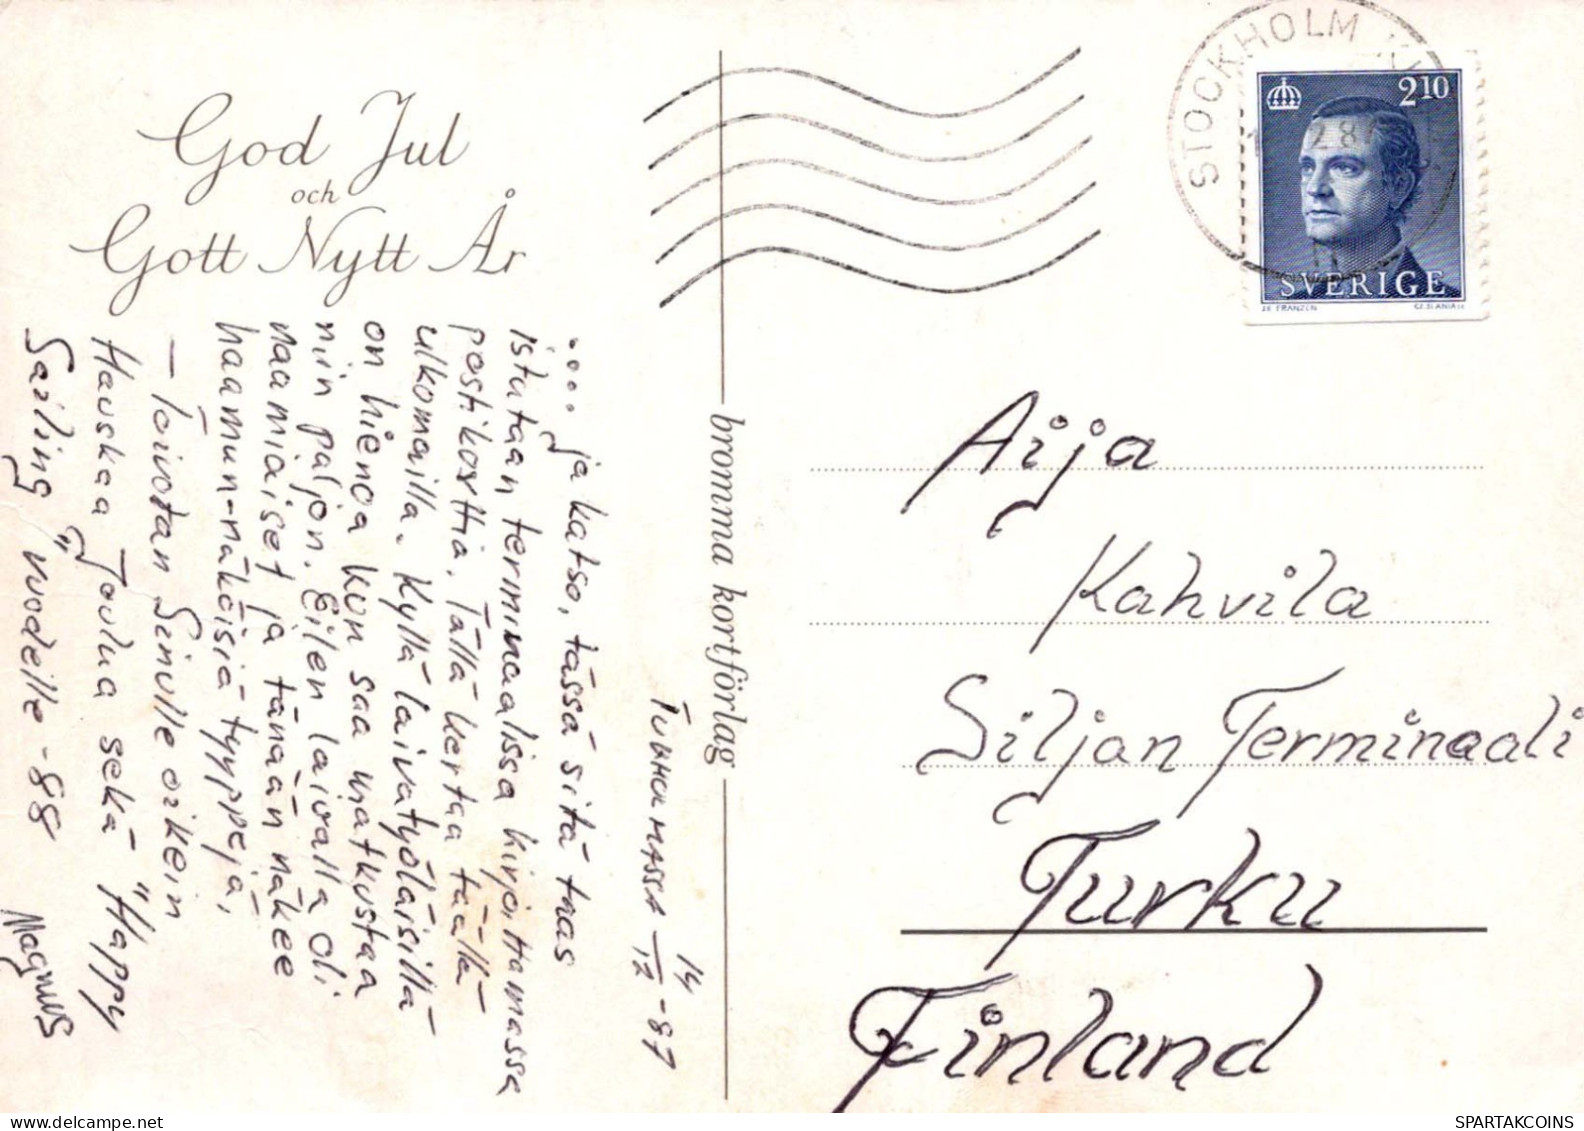 God Jul
och
Gott Nytt År
Tukholmassa 14/12 -87
.... ja katso, tässä sitä taas
istutaan terminaalissa kirjoittamassa
postikorttia. Tällä kertaa täällä
ulkomailla. Kyllä laivatyöläisillä
on hienoa kun saa matkustaa
niin paljon. Eilen laivalla oli
naamiaiset ja tänään näkee
haamun-näköisiä tyyppejä,
– Toivotan Sinulle oikein
Hauskaa Joulua sekä "Happy
Sailing" vuodeille -88
Magnus
bromma kortförlag
STOCKHOLM
2 10
SVERIGE
ZE FRANZEN
CZ SLANIA
Aija
Kahvila
Siljan Terminaali
Turku
Finland
SPARTAKCOINS